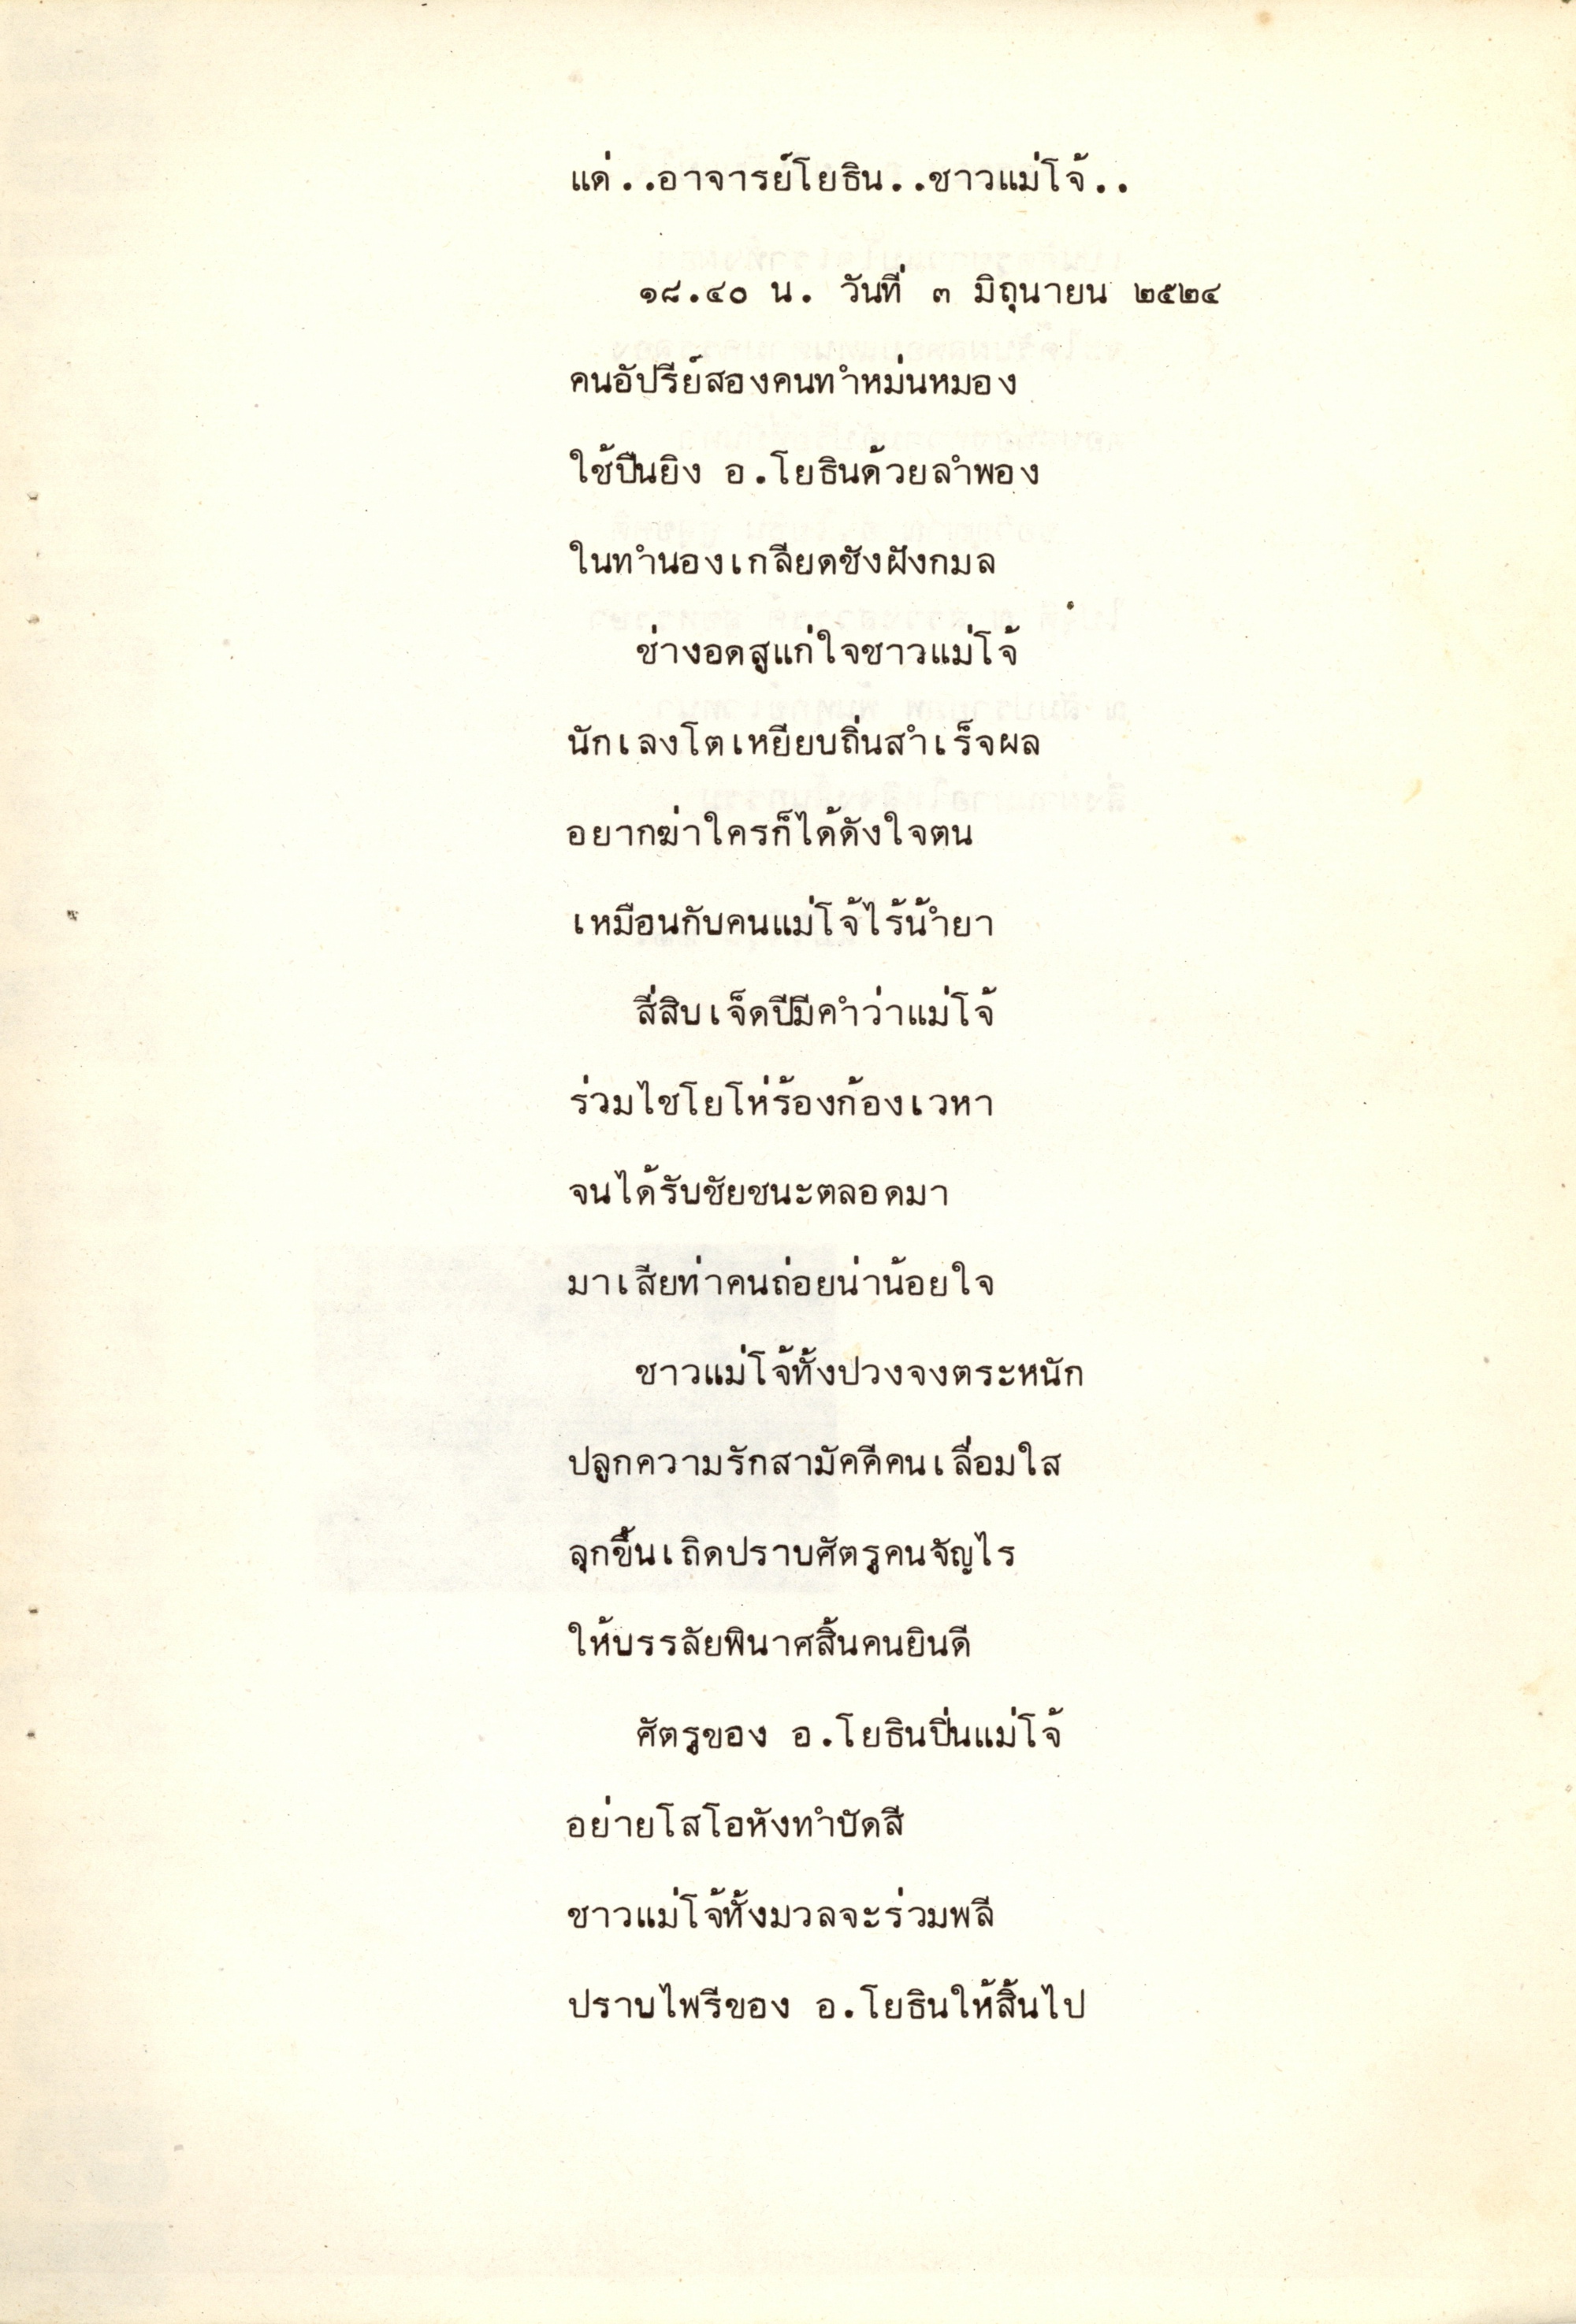 แด่..อาจารย์โยธิน..ชาวแม่โจ้..
๑๘.๔๐ น. วันที่ ๓ มิถุนายน ๒๕๒๔
คนอัปรีย์สองคนทำหม่นหมอง
ใช้ปืนยิง อ.โยธินด้วยลำพอง
ในทำนองเกลียดชังฝังกมล
ช่างอดสูแก่ใจชาวแม่โจ้
นักเลงโตเหยียบถิ่นสำเร็จผล
อยากฆ่าใครก็ได้ดังใจตน
เหมือนกับคนแม่โจ้ไร้น้ำยา
สี่สิบเจ็ดปีมีคำว่าแม่โจ้
ร่วมไชโยโห่ร้องก้องเวหา
จนได้รับชัยชนะตลอดมา
มาเสียท่าคนถ่อยน่าน้อยใจ
ชาวแม่โจ้ทั้งปวงจงตระหนัก
ปลูกความรักสามัคคีคนเลื่อมใส
ลุกขึ้นเถิดปราบศัตรูคนจัญไร
ให้บรรลัยพินาศสิ้นคนยินดี
ศัตรูของ อ.โยธินปิ่นแม่โจ้
อย่ายโสโอหังทำบัดสี
ชาวแม่โจ้ทั้งมวลจะร่วมพลี
ปราบไพรีของ อ.โยธินให้สิ้นไป